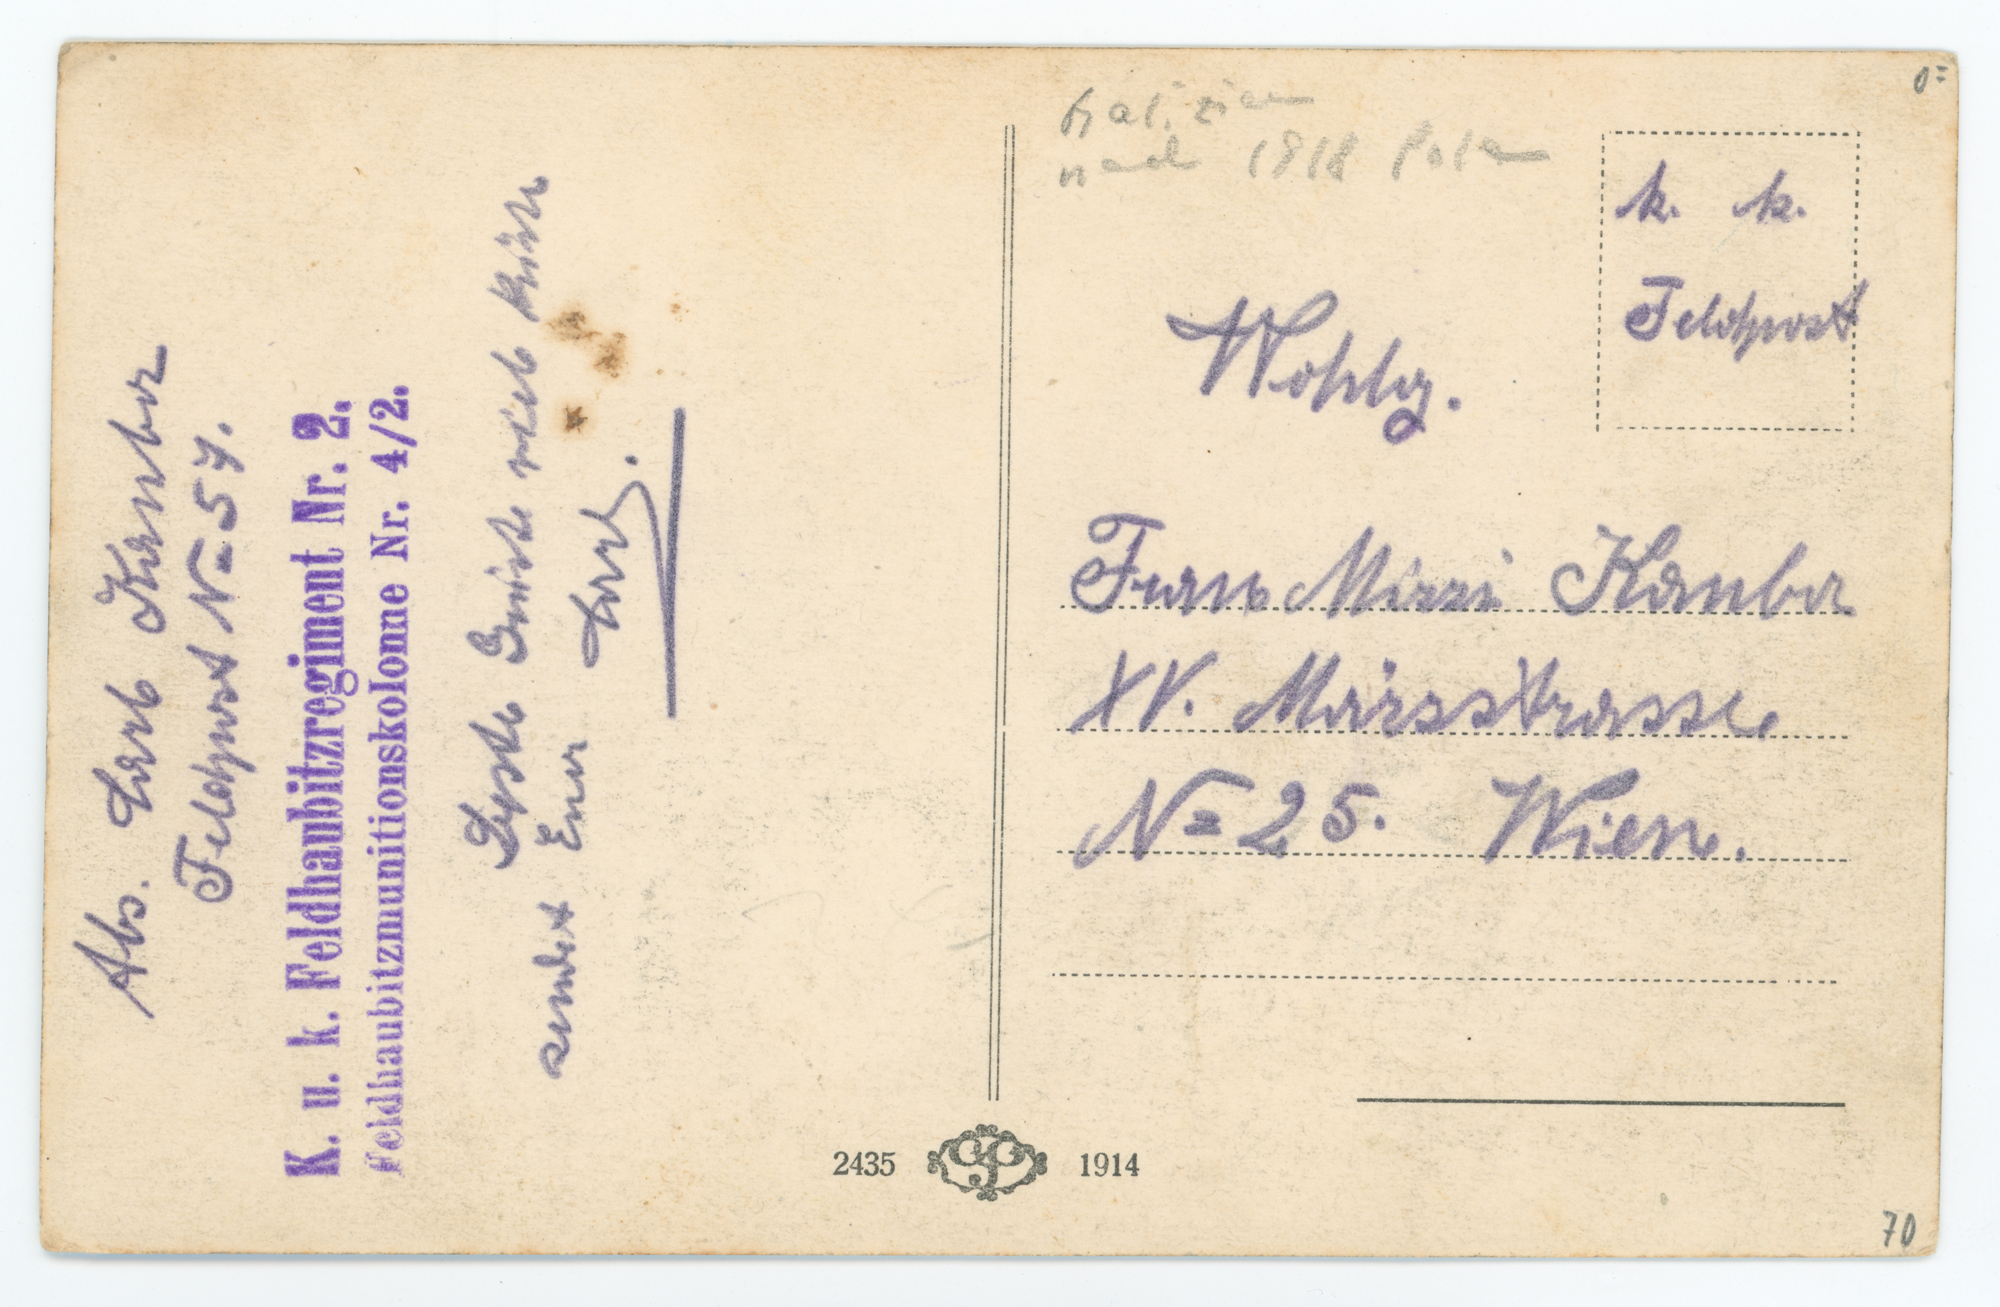 Abs. Karl Kamba
Feldpost N= 57.
K. u. k. Feldhaubitzregiment Nr. 2.
Feldhaubitzmunitionskolonne Nr. 4/2.
Beste Grüsse viele Küsse
sendet Euer Karl.
2435
1914
Galizien
nach 1918 Polen
k. k.
Feldpost
Wohlg.
Frau Mizzi Kamba
XV. Märzstrasse
N= 25. Wien.
70